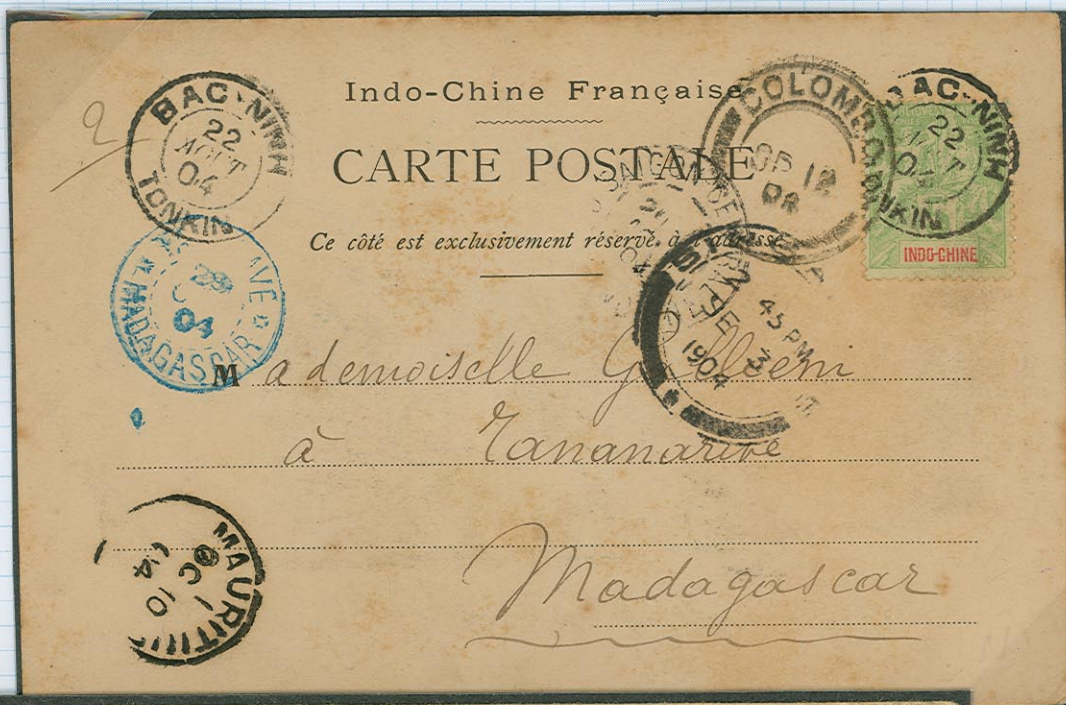 Indo-Chine Française
CARTE POSTALE
Ce côté est exclusivement réservé à l'adresse
2
BAC-NINH
22
AOUT
04
TONKIN
COLOMBO
12
BAC-NINH
22
04
TONKIN
INDO-CHINE
45 PM
3
1904
28
04
MADAGASCAR
Mademoiselle Gallieni
à Tananarive
Madagascar
MAURITIUS
OC 10
04